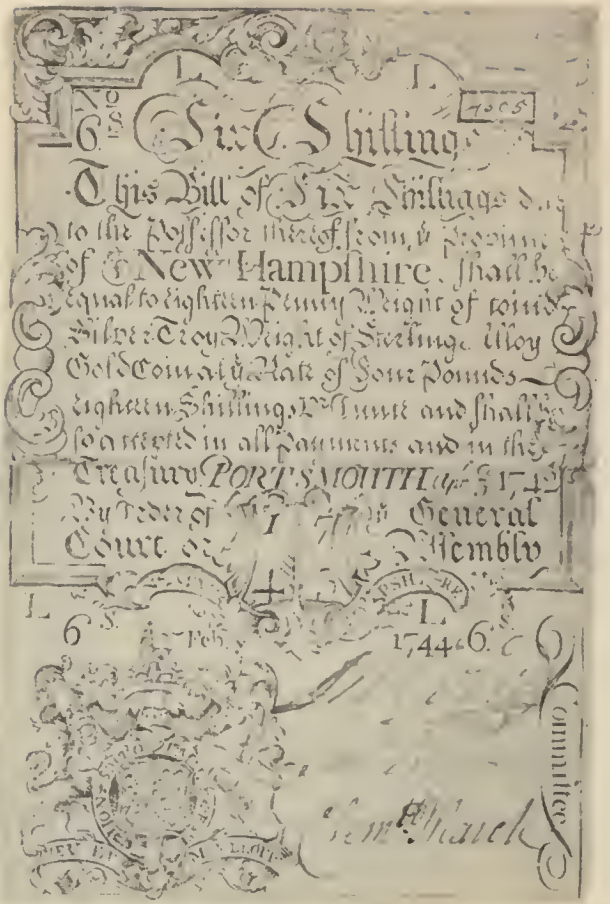 L L
No 4005
6S Six Shillings
This Bill of Six Shillings due
to the Possessor thereof from ye Province
of New Hampshire. Shall be
equal to eighteen Penny Weight of coind
Silver Troy Weight of Sterling Alloy
Gold Coin at ye Rate of Four Pounds
eighteen Shillings Pr Ounce and shall be
so accepted in all payments and in the
Treasury PORTSMOUTH apr 3 174
By Order of General
Court or Assembly
L L
6S Feb 1744 6
Committee
HONI SOIT QUI MAL Y PENSE
DIEU ET MON DROIT